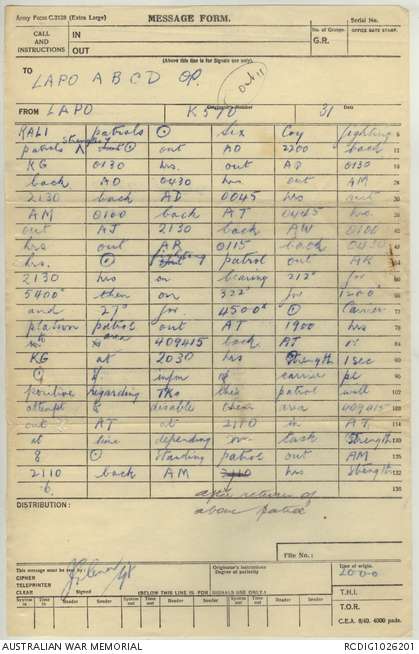 Army Form C.2128 (Extra Large) MESSAGE FORM. Serial No.
CALL AND INSTRUCTIONS IN No. of Groups. OFFICE DATE STAMP.
OUT G.R.
(Above this line is for Signals use only).
TO
LAPO A B C D OP. Out 11
FROM LAPO Originator's Number K570 31 Date
KALI patrols ⊙ Six Coy fighting 5
patrols strength out AD 2200 back
KG 0130 hrs out AD 0130
back AD 0430 hrs out AM
2130 back AD 0045 hrs out
AM 0100 back AT 0445 hrs.
out AJ 2130 back AW 0100
hrs out AR 0115 back 0430
hrs. ⊙ patrol out AK
2130 hrs on bearing 212° for
5400ˣ then on 322° for 1200ˣ
and 27° for 4500ˣ ⊙ Carrier
platoon patrol out AT 1900 hrs
area 409415 back AT or
KG at 2030 hrs Strength 1 sec
⊙ if infm of carrier pl
positive regarding TKs this patrol will
attempt & disable them area 409415
out AT at 2110 in AT
at time depending on task Strength
8 ⊙ Standing patrol out AM
2110 back AM 2110 hrs strength
6. after return of
above patrol
DISTRIBUTION:
File No.:
This message must be sent by
CIPHER
TELEPRINTER
CLEAR
Signed
Originator's Instructions
Degree of priority
Time of origin
2000
T.H.I.
T.O.R.
(BELOW THIS LINE IS FOR SIGNALS USE ONLY)
System in Time in Reader Sender System out Time out Reader Sender System out Time out Reader Sender
C.E.A. 9/40. 4000 pads
AUSTRALIAN WAR MEMORIAL RCDIG1026201